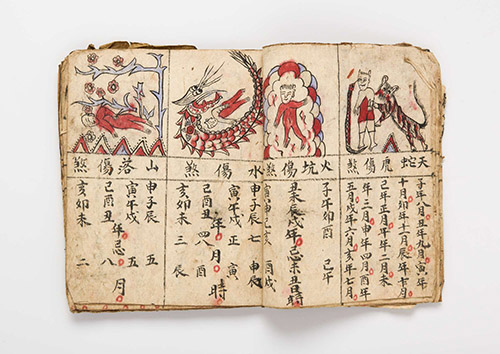 天蛇虎傷煞
子年八月丑年九月寅年
十月卯年十一月辰年十二月
巳年正月午年二月未
年三月申年四月酉年
五月戌年六月亥年七月
火坑傷煞
子午卯酉 巳午
丑未辰戌年忌未丑時
寅申巳亥 酉戌
水傷煞
申子辰七 申辰
寅午戌 正 寅
年 月 時
巳酉丑 四八 酉
亥卯未 三 辰
山落傷煞
申子辰 五
寅午戌 五
年忌 月
巳酉丑 八
亥卯未 二